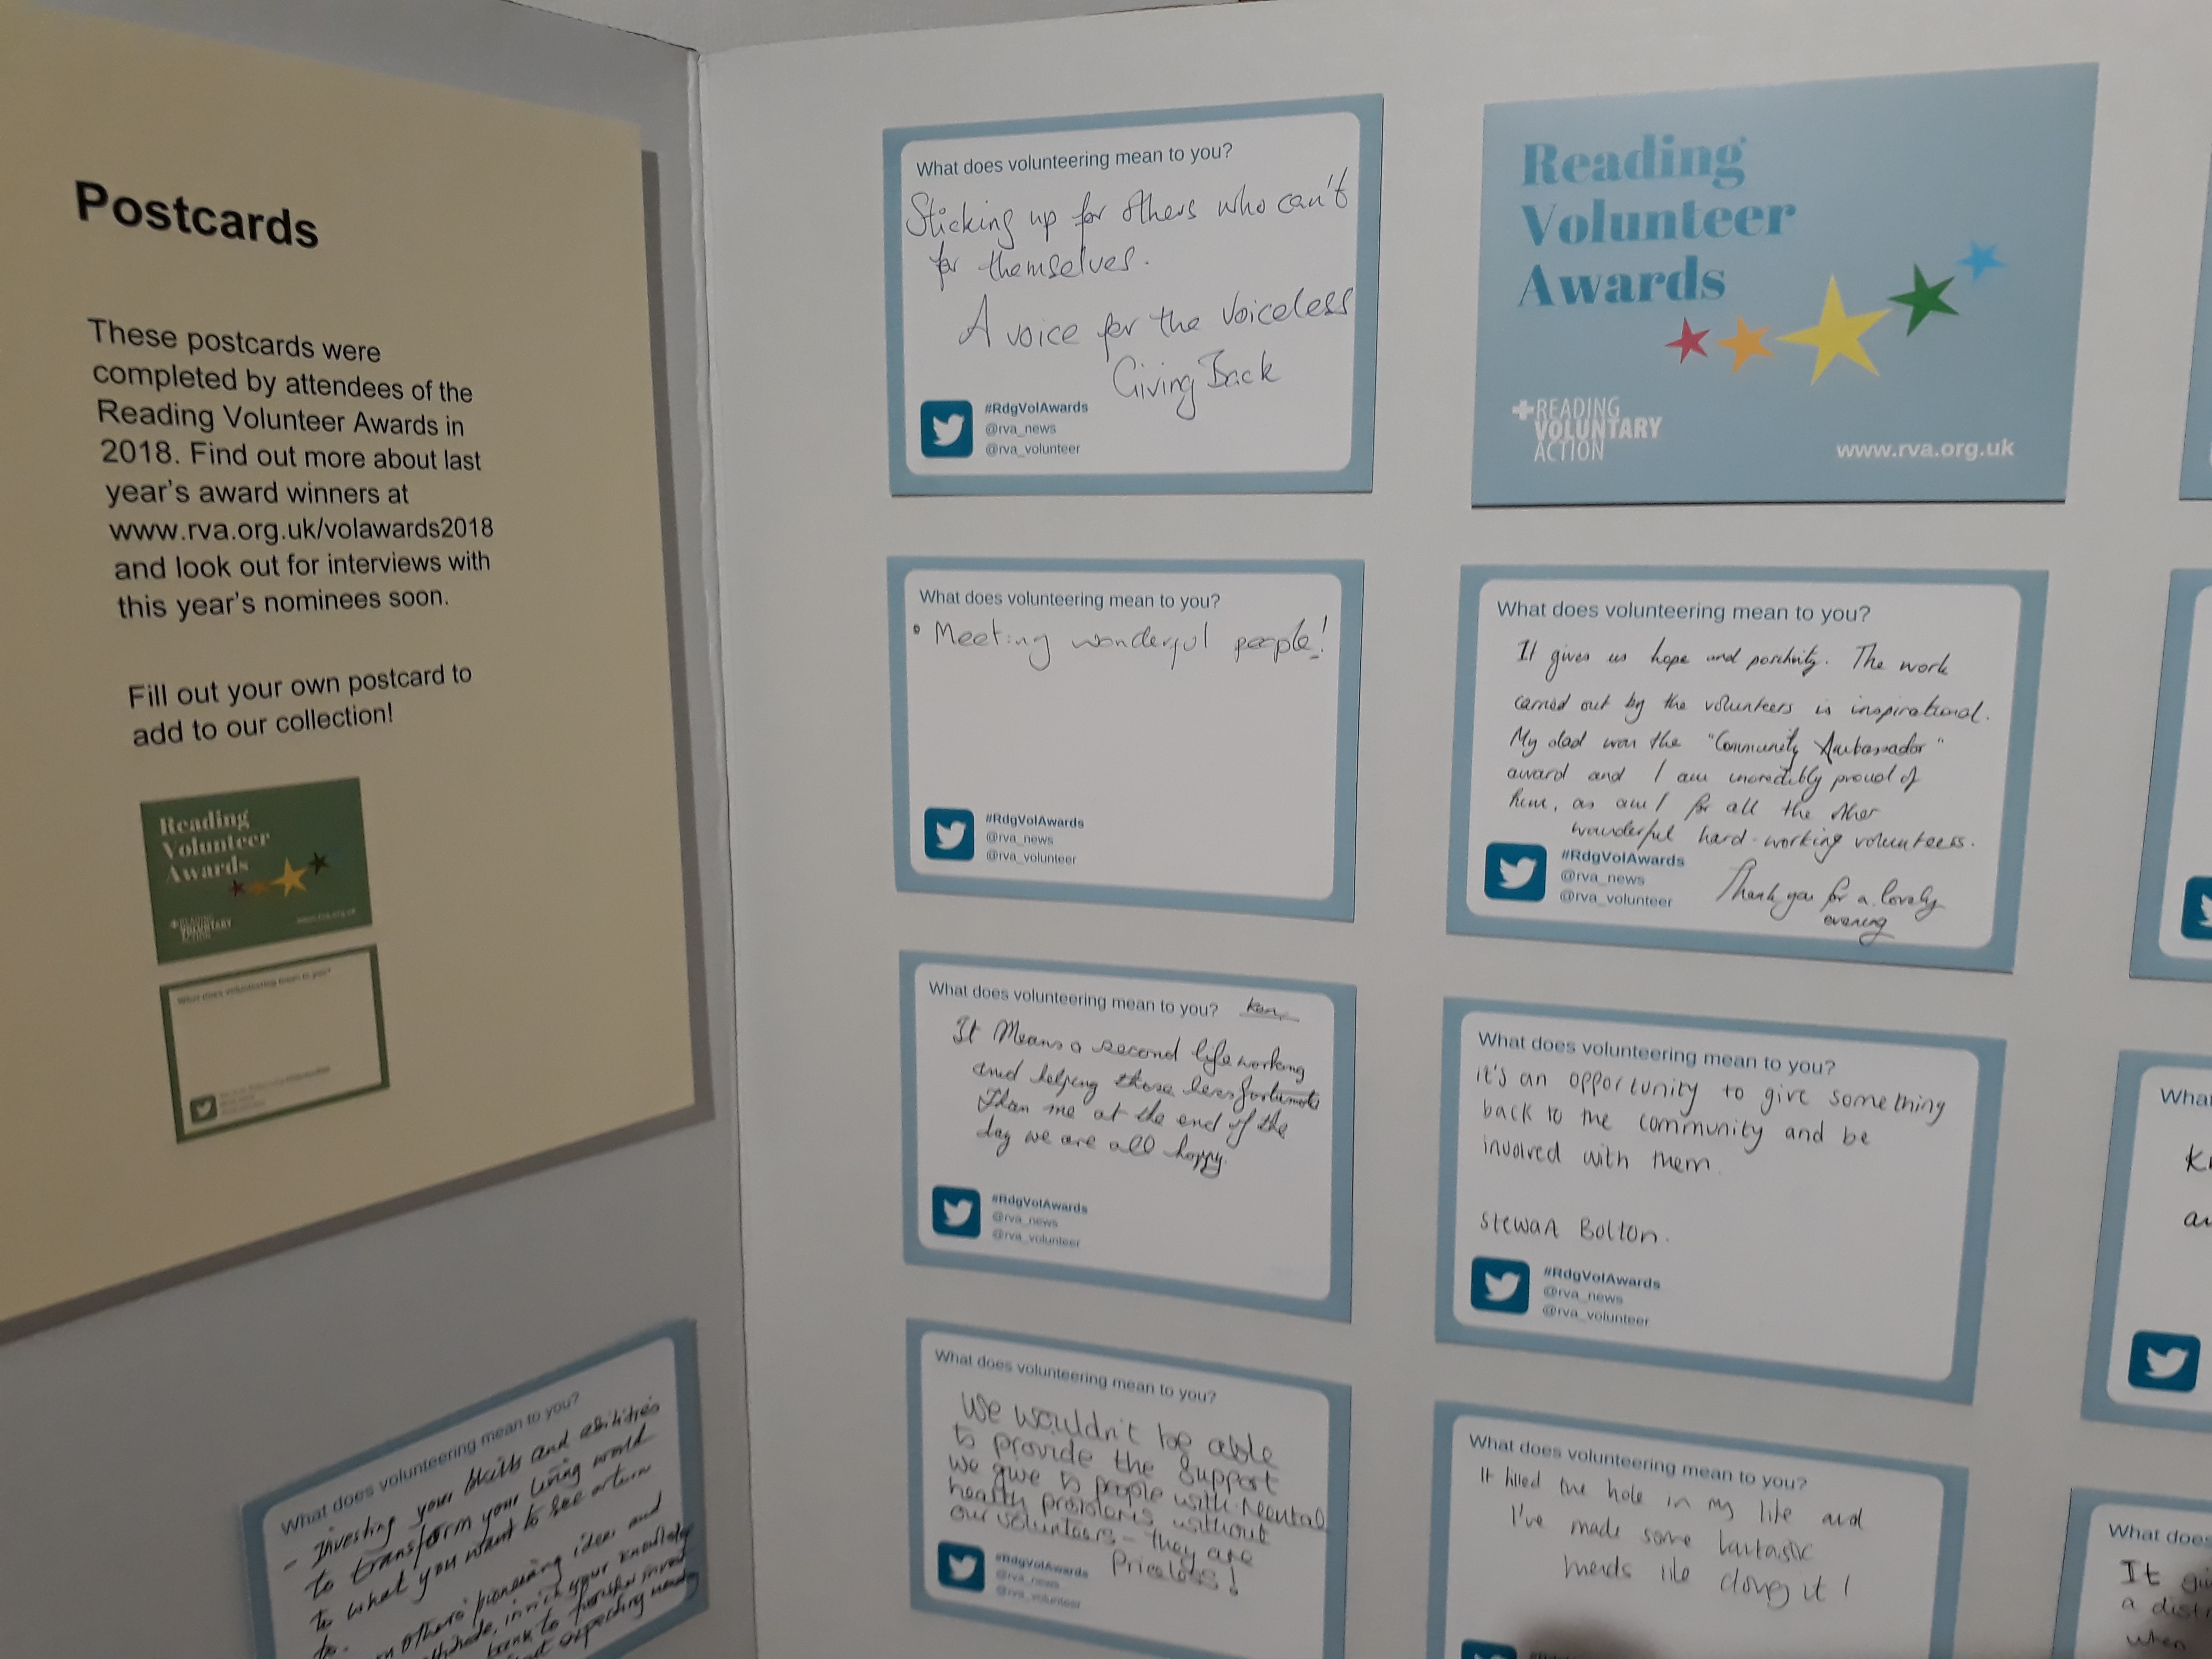 Postcards
These postcards were
completed by attendees of the
Reading Volunteer Awards in
2018. Find out more about last
year's award winners at
www.rva.org.uk/volawards2018
and look out for interviews with
this year's nominees soon.
Fill out your own postcard to
add to our collection!
Reading
Volunteer
Awards
READING
VOLUNTARY
ACTION
www.rva.org.uk
What does volunteering mean to you?
What does volunteering mean to you?
- Investing your skills and abilities
to transform your living world
to what you want to see
others' pioneering ideas and
enrich your knowledge
to
expecting
What does volunteering mean to you?
Sticking up for others who can't
for themselves.
A voice for the voiceless
Giving Back
#RdgVolAwards
@rva_news
@rva_volunteer
Reading
Volunteer
Awards
READING
VOLUNTARY
ACTION
www.rva.org.uk
What does volunteering mean to you?
• Meeting wonderful people!
#RdgVolAwards
@rva_news
@rva_volunteer
What does volunteering mean to you?
It gives us hope and. The work
carried out by the volunteers is inspirational.
My dad won the "Community Ambassador"
award and I am incredibly proud of
him, as am I for all the other
wonderful hard-working volunteers.
#RdgVolAwards
@rva_news
@rva_volunteer
Thank you for a lovely
evening
What does volunteering mean to you? Ken
It Means a second life working
and helping those less fortunate
Than me at the end of the
day we are all happy.
#RdgVolAwards
@rva_news
@rva_volunteer
What does volunteering mean to you?
it's an opportunity to give something
back to the community and be
involved with them.
Stewart Bolton.
#RdgVolAwards
@rva_news
@rva_volunteer
What does volunteering mean to you?
We wouldn't be able
to provide the support
we give to people with Mental
health problems without
our volunteers - they are
Priceless!
#RdgVolAwards
@rva_news
@rva_volunteer
What does volunteering mean to you?
It filled the hole in my life and
I've made some fantastic
friends like doing it!
What
What does
It
a
when